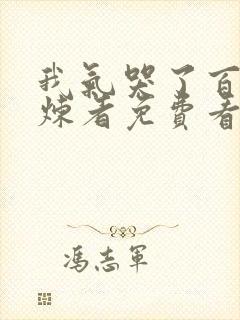 我氣哭了百
煉者免費看
馮志軍